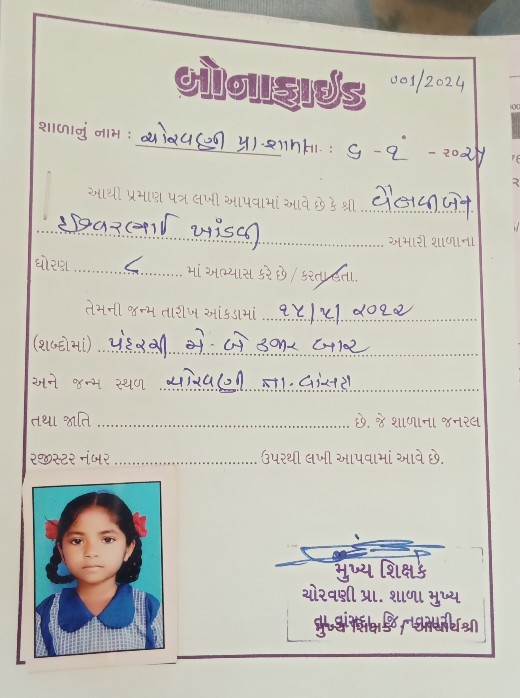 બોનાફાઈડ 001/2024
શાળાનું નામ : ચોરવણી પ્રા. શાળા તા. : ૬ - ૧ - ૨૦૨૫
આથી પ્રમાણ પત્ર લખી આપવામાં આવે છે કે શ્રી વૈભવીબેન
ઈશ્વરભાઈ ખાંડવી અમારી શાળાના
ધોરણ ૮ માં અભ્યાસ કરે છે / કરતા હતા.
તેમની જન્મ તારીખ આંકડામાં ૧૫/૫/૨૦૧૨
(શબ્દોમાં) પંદરમી મે - બે હજાર બાર
અને જન્મ સ્થળ ચોરવણી તા. વાંસદા
તથા જાતિ ........ છે. જે શાળાના જનરલ
રજીસ્ટર નંબર ........ ઉપરથી લખી આપવામાં આવે છે.
મુખ્ય શિક્ષક
ચોરવણી પ્રા. શાળા મુખ્ય
તા. વાંસદા જિ. નવસારી
મુખ્ય શિક્ષક / આચાર્યશ્રી